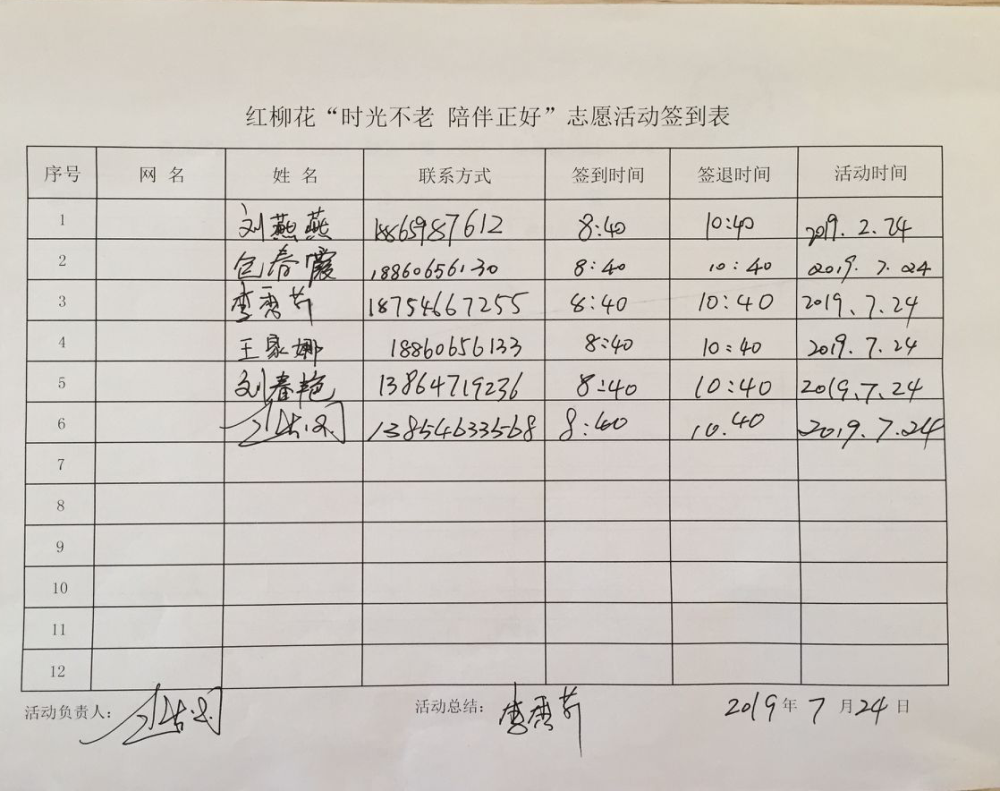 红柳花“时光不老 陪伴正好”志愿活动签到表
序号 网名 姓名 联系方式 签到时间 签退时间 活动时间
1 刘燕燕 18865987612 8:40 10:40 2019.2.24
2 包春霞 18860656130 8:40 10:40 2019.7.24
3 李秀芹 18754667255 8:40 10:40 2019.7.24
4 王家娜 18860656133 8:40 10:40 2019.7.24
5 刘春艳 13864719236 8:40 10:40 2019.7.24
6 13854633568 8:40 10.40 2019.7.24
7
8
9
10
11
12
活动负责人: 活动总结: 李秀芹 2019年7月24日